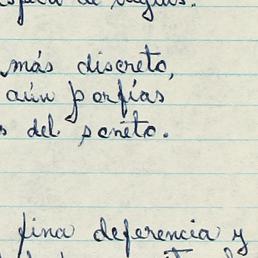 más discreto,
aún porfías
s del soneto.
fina deferencia y